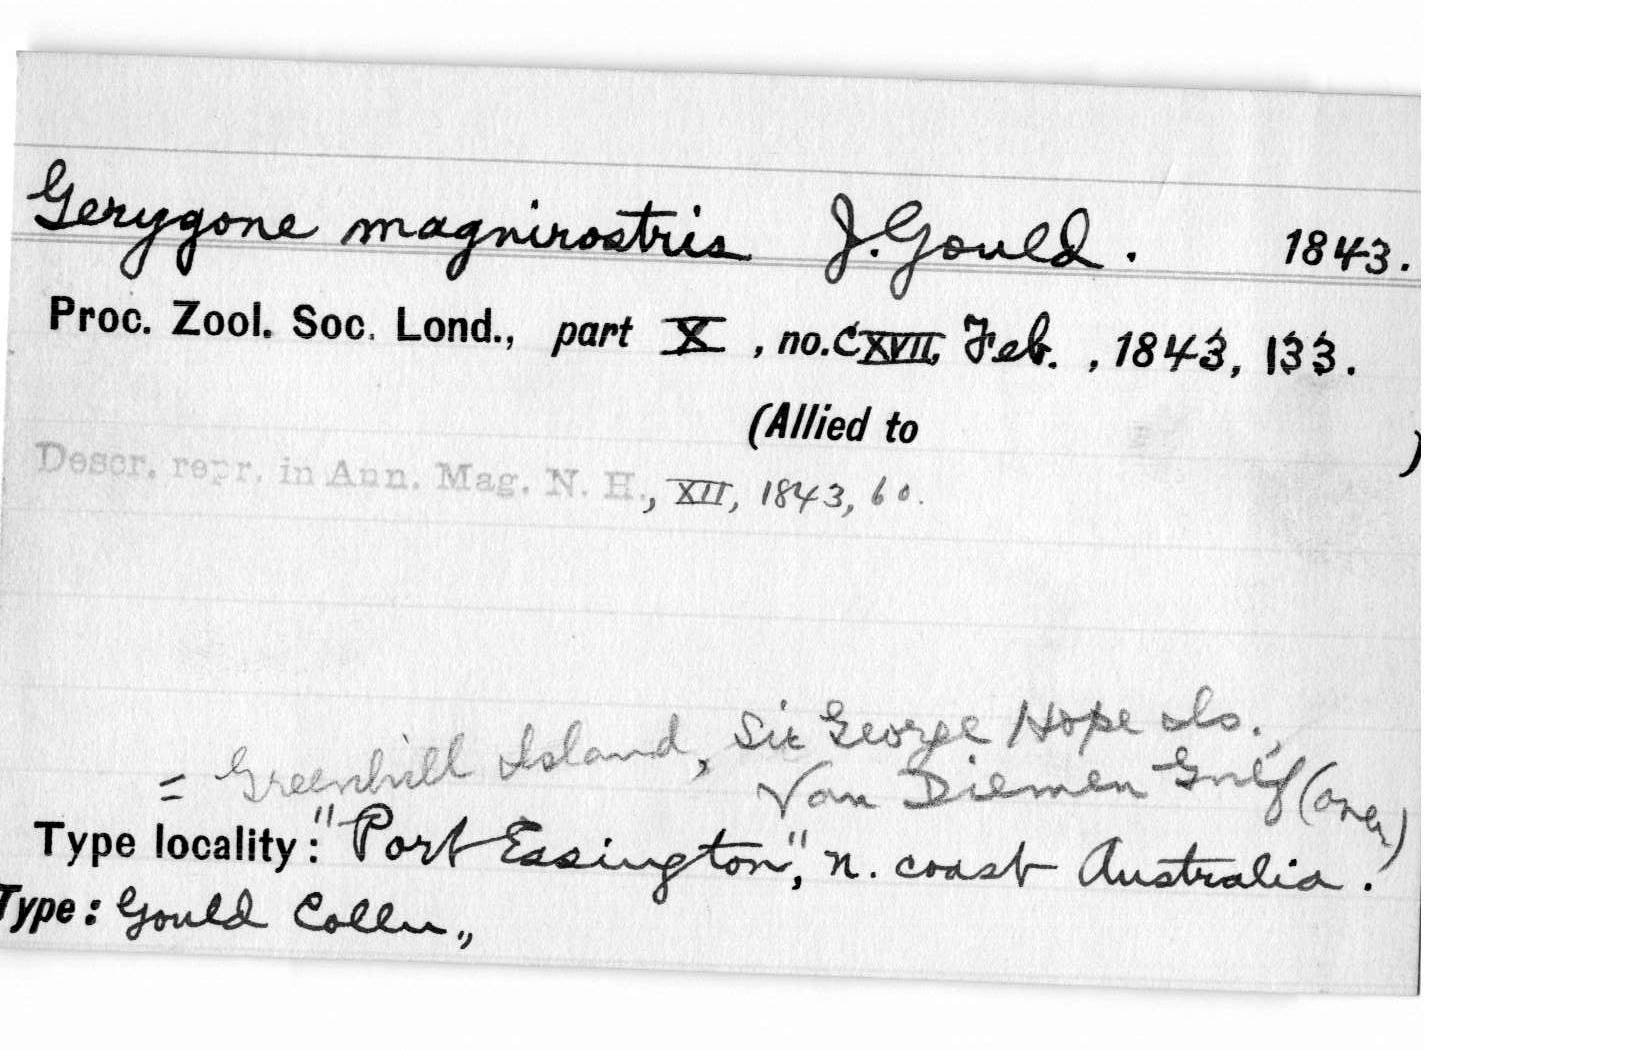 Gerygone magnirostris J. Gould. 1843.
Proc. Zool. Soc. Lond., part X, no. CXVII, Feb., 1843, 133.
(Allied to )
Descr. repr. in Ann. Mag. N. H., XII, 1843, 60.
= Greenhill Island, Sir George Hope Is.,
Van Diemen Gulf (over)
Type locality: "Port Essington", n. coast Australia.
Type: Gould Colln.,